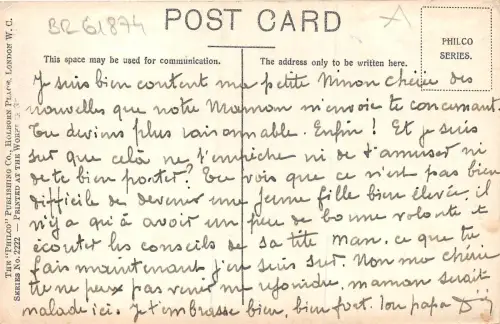 BR 61874
POST CARD
A
This space may be used for communication.
The address only to be written here.
PHILCO
SERIES.
THE "PHILCO" PUBLISHING CO., HOLBORN PLACE, LONDON W. C.
SERIES No. 2222 — PRINTED AT THE WORKS
Je suis bien content ma petite Ninon chérie des
nouvelles que notre Maman m'envoie te concernant.
Tu deviens plus raisonnable. Enfin! Et je suis
sur que celà ne t'empêche ni de t'amuser ni
de te bien porter? Tu vois que ce n'est pas bien
difficile de devenir une jeune fille bien élevée, il
n'y a qu'à avoir un peu de bonne volonté et
écouter les conseils de sa tite man. ce que tu
fais maintenant j'en suis sur. Non mo chérie
tu ne peux pas venir me rejoindre, maman serait
malade ici. Je t'embrasse bien, bien fort. Ton papa